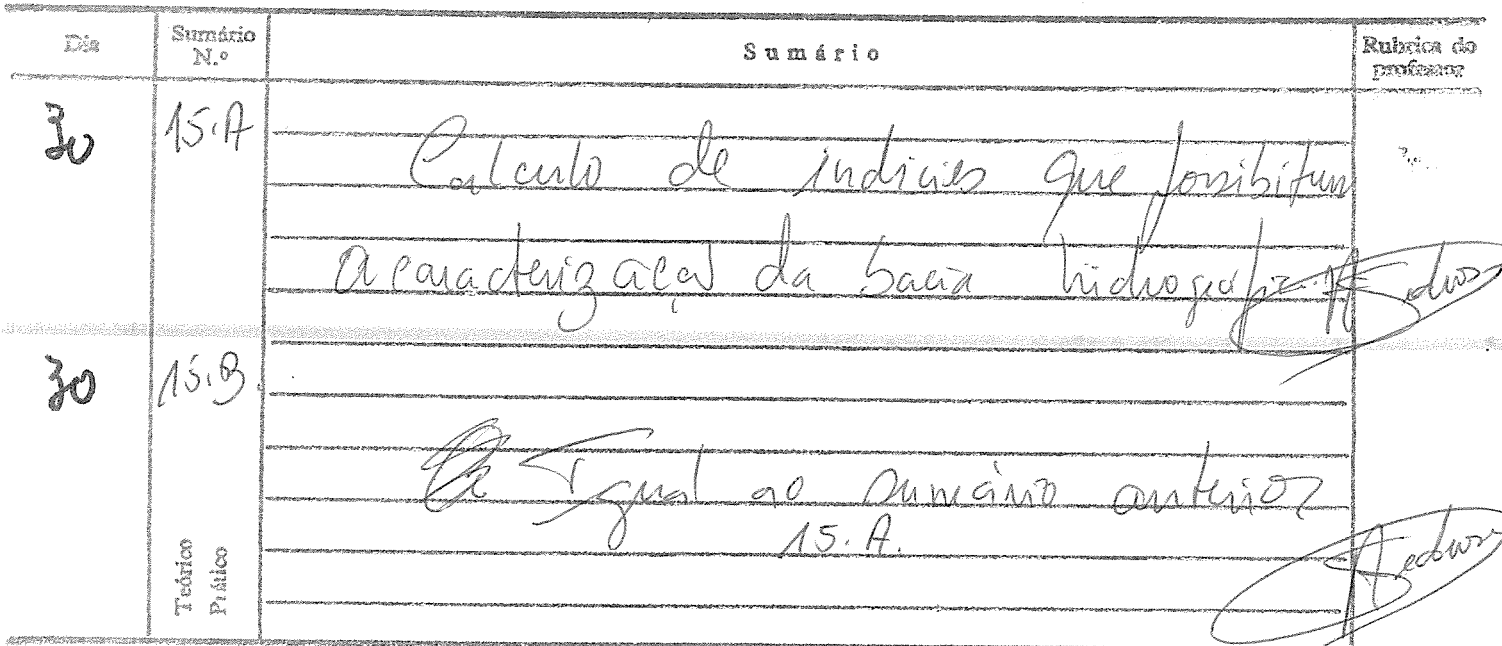 Dia Sumário N.º Sumário Rubrica do professor
30 15.A
Calculo de indicies que possibitam
a caracterização da bacia hidrografica
30 15.B.
Igual ao sumário anterior
15. A.
Teórico
Prático